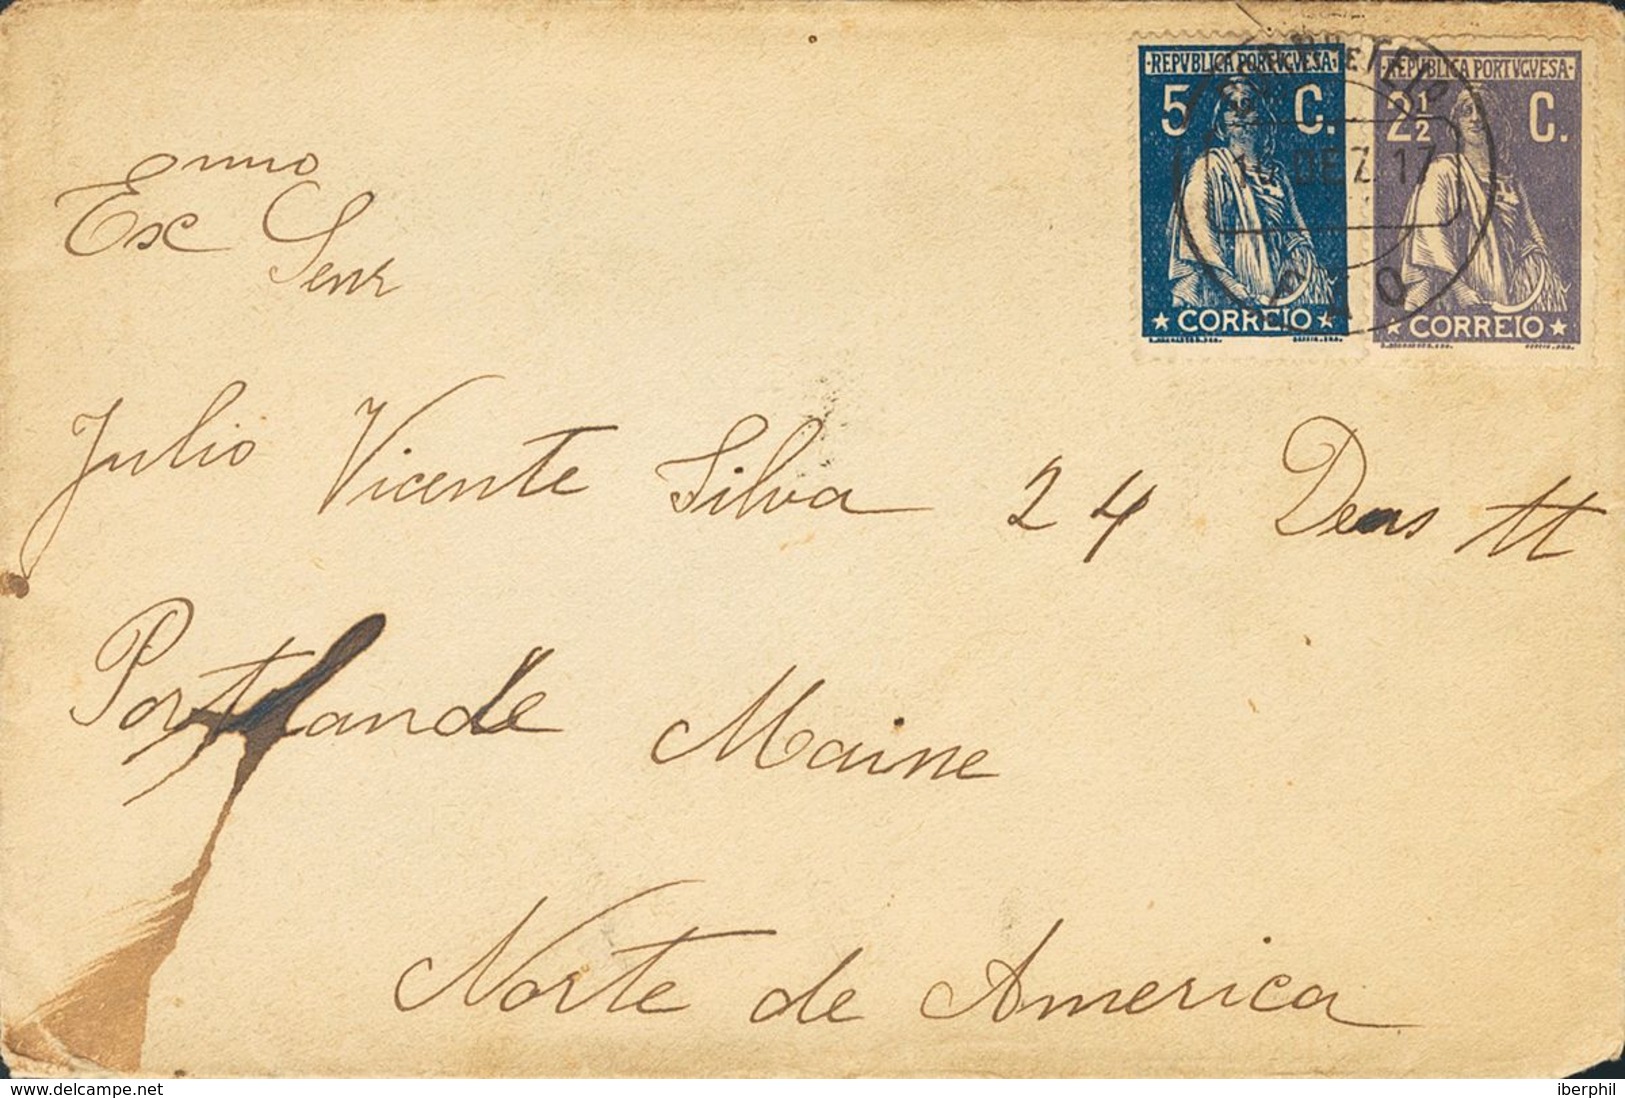 REPVBLICA PORTVGVESA
5 C.
CORREIO
REPVBLICA PORTVGVESA
2½ C.
CORREIO
DEZ 17
Exc mo
Senr
Julio Vicente Silva 24 Deas tt
Portlande Maine
Norte de America
www.delcampe.net
iberphil